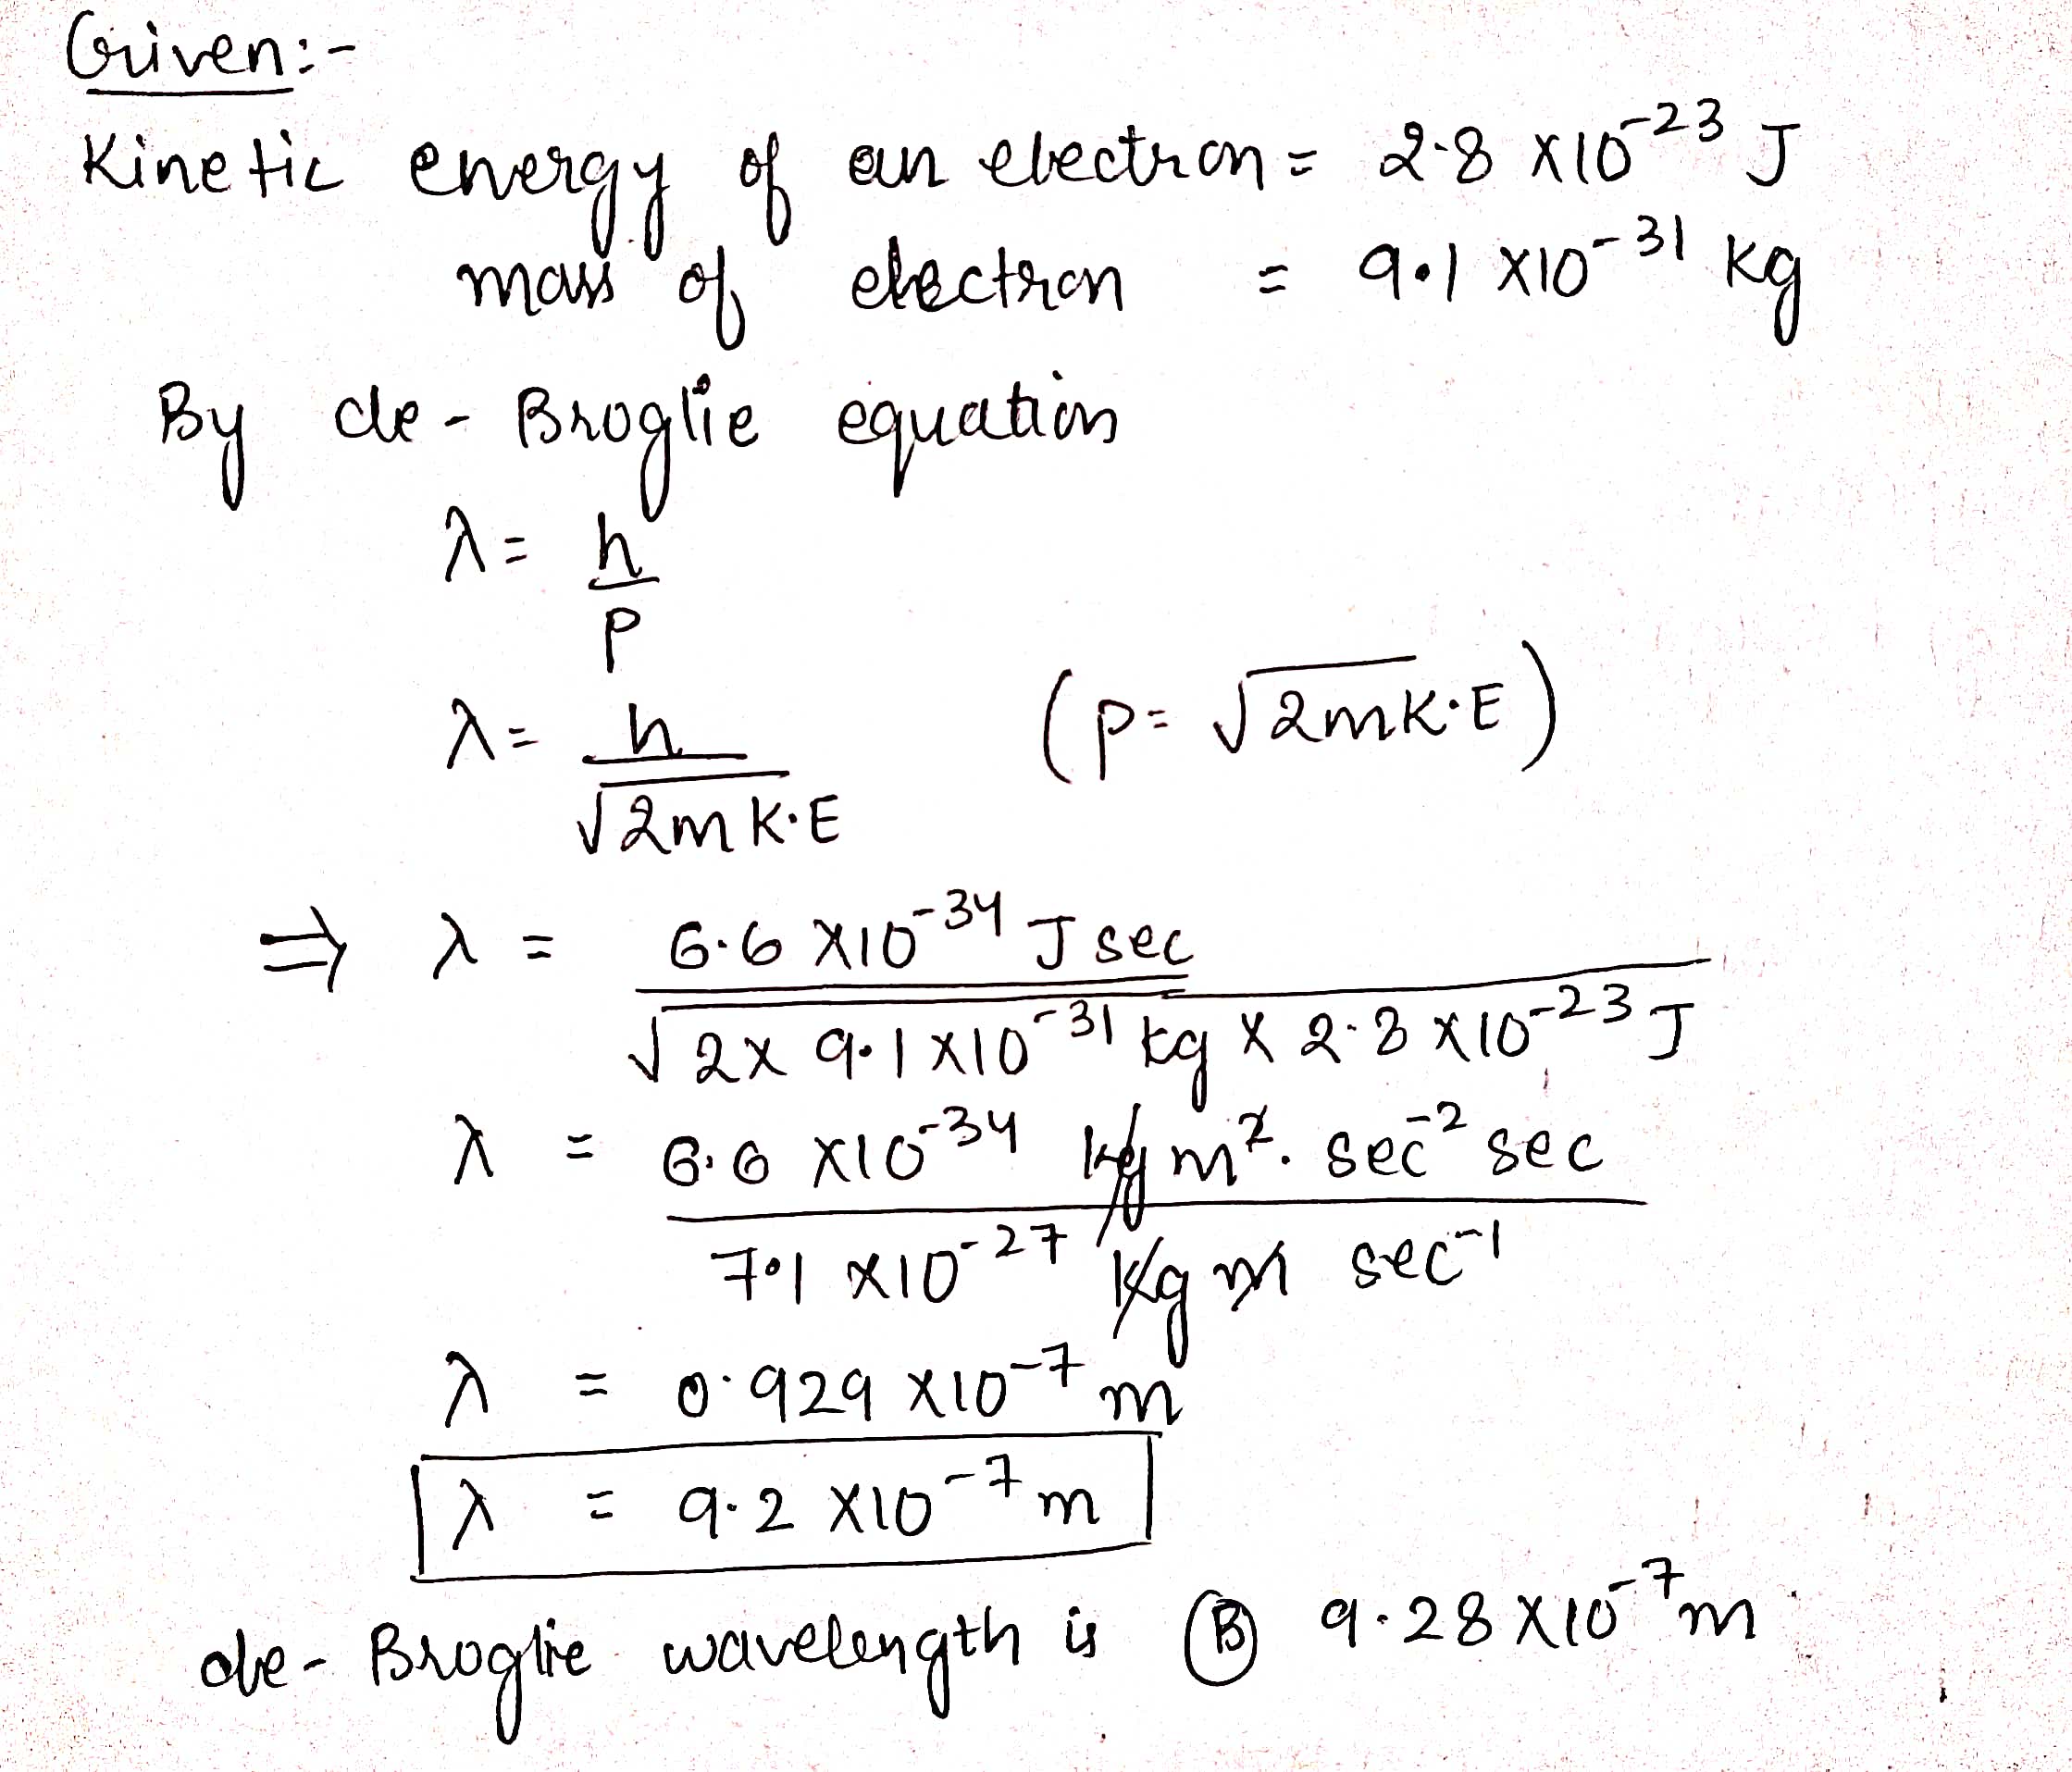 Given:-
Kinetic energy of an electron = 2.8 x10-23 J
mass of electron = 9.1 x10-31 Kg
By de-Broglie equation
λ = h/p
λ = h/√2mK.E (p = √2mK.E)
⇒ λ = 6.6 x10-34 J sec / √2x 9.1 x10-31 kg x 2.8 x10-23 J
λ = 6.6 x10-34 kg m2. sec-2 sec / 7.1 x10-27 Kg m sec-1
λ = 0.929 x10-7 m
λ = 9.2 x10-7 m
de-Broglie wavelength is (B) 9.28 x10-7 m